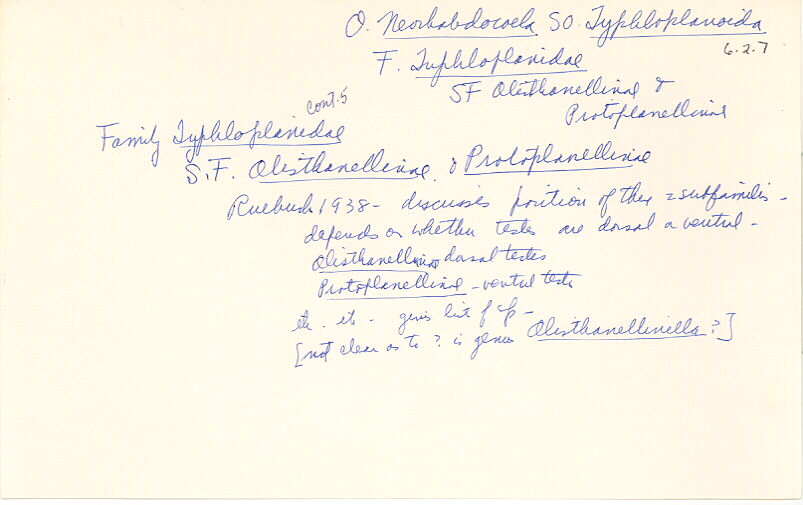 O. Neorhabdocoela SO. Typhloplanoida
6.2.7
F. Typhloplanidae
SF Olisthanellinae &
Protoplanellinae
cont. 5
Family Typhloplanidae
S.F. Olisthanellinae & Protoplanellinae
Ruebush 1938 - discusses position of these 2 subfamilies -
depends on whether testes are dorsal or ventral -
Olisthanellinae dorsal testes
Protoplanellinae - ventral testes
etc. etc. - gives list of sp -
[not clear as to ? is genus Olisthanellinella ?]